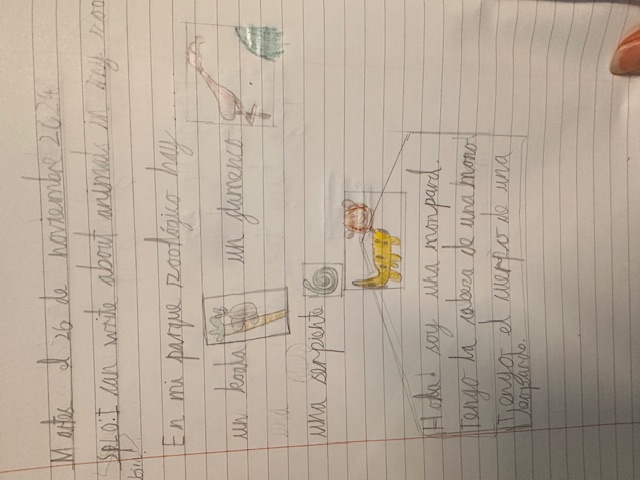 Martes el 26 de noviembre 2024
SpLO: I can write about animals in my zoo
En mi parque zoológico hay
un koala un flamenco
una serpiente
Hola! soy una monpard.
Tengo la cabeza de una mono
Tengo el cuerpo de una
leopardo.